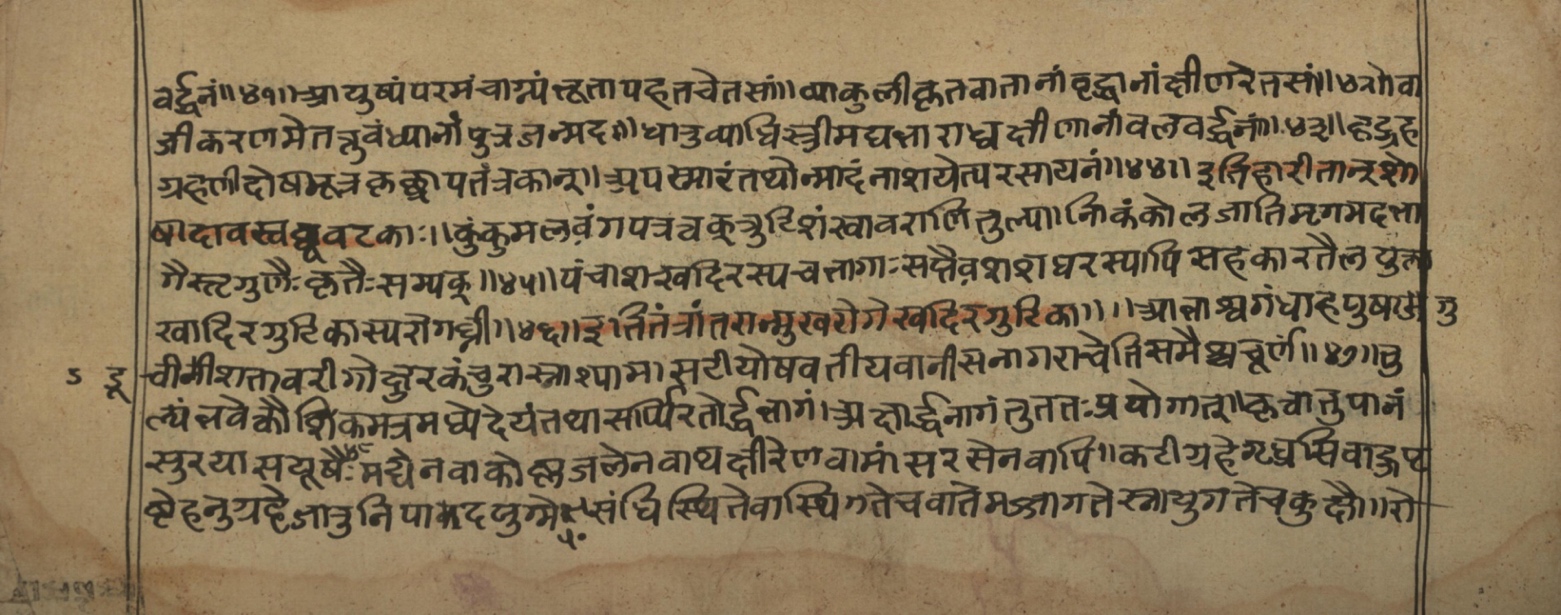 वर्द्धनं॥४१॥आयुष्यंपरमंचाग्र्यंभूतापहतचेतसां॥व्याकुलीकृतवातानांवृद्धानांक्षीणरेतसां॥४२॥वा
जीकरणमेतत्तुवंध्यानांपुत्रजन्मद॥धातुव्याधिस्त्रीमद्यभाराध्वक्षीणानांबलवर्द्धनं॥४३॥हृद्ग्रह
ग्रहणीदोषमूत्रकृच्छ्रापतंत्रकान्॥अपस्मारंतथोन्मादंनाशयेत्परसायनं॥४४॥इतिहारीतान्‌शो
षादावस्वघ्नूवटकाः॥कुंकुमलवंगपत्रत्वक्‌त्रुटिशंखावराणितुल्यानि॥कंकोलजातिमृगमदभा
गैस्त्रिगुणैःकृतैःसम्यक्॥४५॥पंचाशखदिरस्यचभागाःसप्तैवशशधरस्यापिसहकारतैलयुक्ता
खादिरगुटिकास्यरोगघ्नी॥४६॥इतितंत्रांतरान्मुखरोगेखदिरगुटिका॥॥आभाश्वगंधाहपुषा गु
डूचीशतावरीगोक्षुरकंचुरास्नाश्यामासटीयोषवतीयवानीसनागराचेतिसमैश्चचूर्णं॥४७॥तु
ल्यंभवेकौशिकमत्रमध्येदेयंतथासर्प्पिरतोर्द्धभागं।अक्षार्द्धभागंतुततःप्रयोगात्॥कृत्वानुपानं
सुरयासयूषैःमद्येनवाकोष्णजलेनवाथक्षीरेणवामांसरसेनवापि॥कटीग्रहेगृध्रसिबाहुपृ
ष्ठेहनुग्रहेजानुनिपादयुग्मेसंधिस्थितेवास्थिगतेचवातेमज्जागतेस्नायुगतेचकुक्षौ॥रो